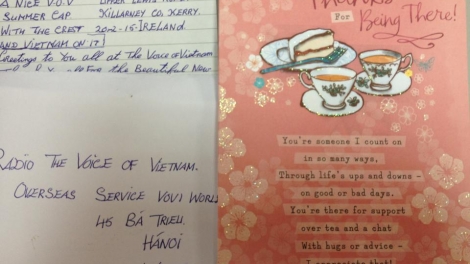 A NICE V.O.V
SUMMER CAP.
WITH THE CREST
AND VIETNAM ON IT
UPPER LEWIS
KILLARNEY CO. KERRY.
2012-15. IRELAND.
Greetings to You all at The Voice of Vietnam
For the Beautiful New
RADIO THE VOICE OF VIETNAM.
OVERSEAS SERVICE VOV1 WORLD
45 BÀ TRIEU
HÁNOI
Thanks
For Being There!
You're someone I count on
in so many ways,
Through life's ups and downs –
on good or bad days.
You're there for support
over tea and a chat
With hugs or advice –
I appreciate that!